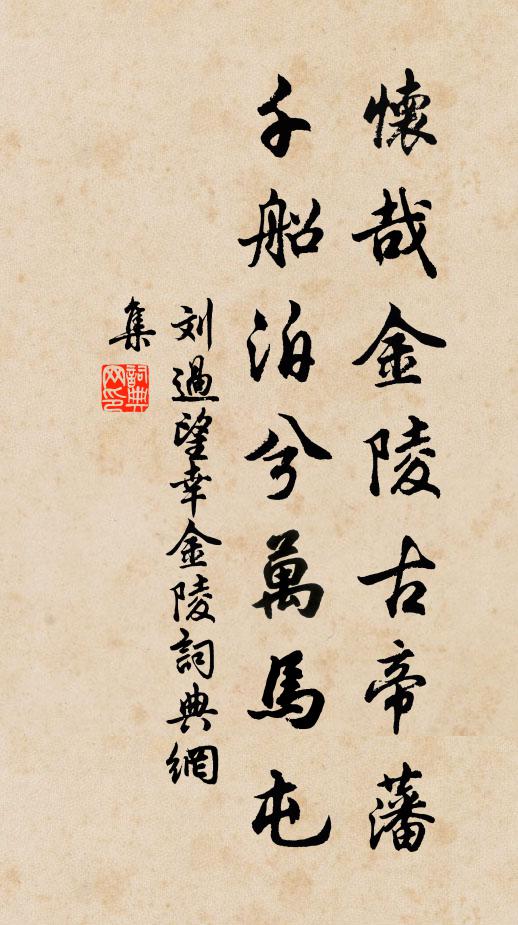 懷哉金陵古帝藩
千船泊兮萬馬屯
刘過望幸金陵詞典網
集
詞典网印